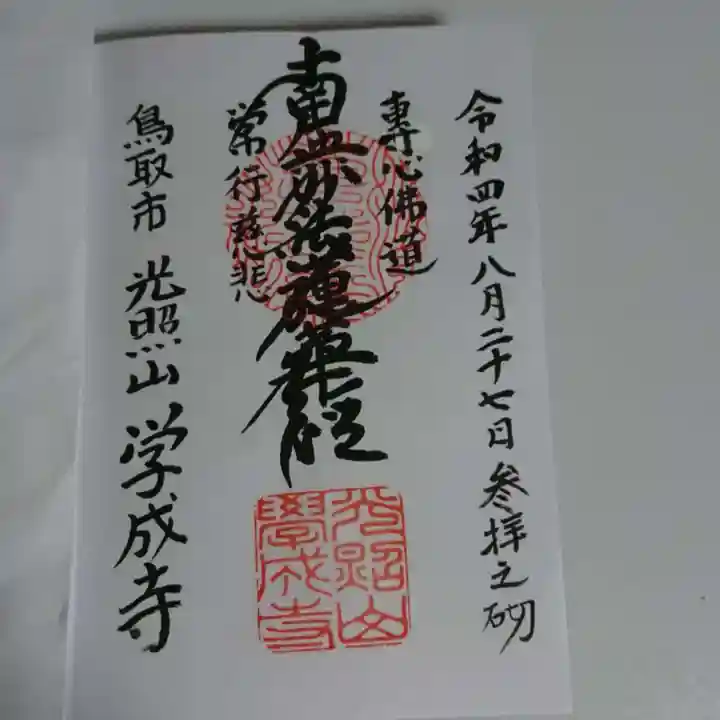 令和四年八月二十七日参拝之砌
専心佛道
南無妙法蓮華経
常行慈悲
鳥取市 光照山 学成寺
光照山
學成寺